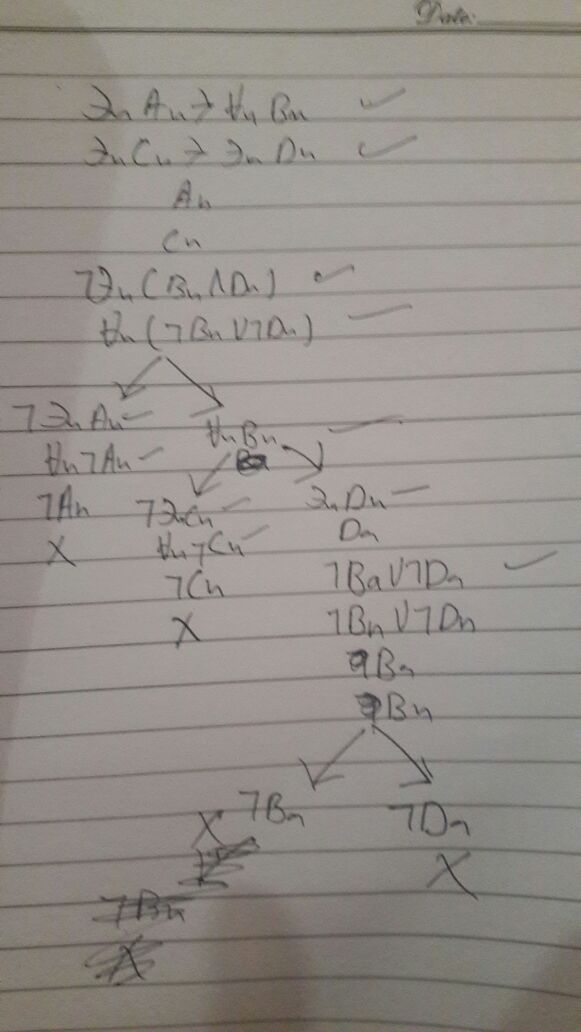 Date:
∃n An → ∀n Bn
∃n Cn → ∃n Dn
An
Cn
¬∃n (Bn ∧ Dn)
∀n (¬Bn ∨ ¬Dn)
¬∃n An ∀n Bn
∀n ¬An
¬An ¬∃n Cn ∃n Dn
X ∀n ¬Cn Dn
¬Cn ¬Ba ∨ ¬Dn
X ¬Bn ∨ ¬Dn
Bn
Bn
X ¬Bn ¬Dn
X